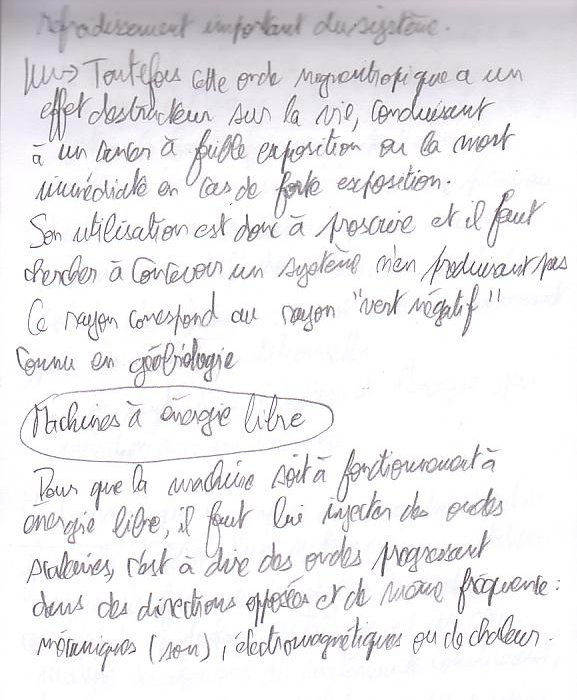 refroidissement important du système.
Toutefois cette onde magnétotropique a un
effet destructeur sur la vie, conduisant
à un cancer à faible exposition ou la mort
immédiate en cas de forte exposition.
Son utilisation est donc à proscrire et il faut
chercher à concevoir un système n'en produisant pas
Ce rayon correspond au rayon "vert négatif"
connu en géobiologie
Machines à énergie libre
Pour que la machine soit à fonctionnement à
énergie libre, il faut lui injecter des ondes
scalaires, c'est à dire des ondes progressant
dans des directions opposées et de même fréquence :
mécaniques (son), électromagnétiques ou de chaleur.